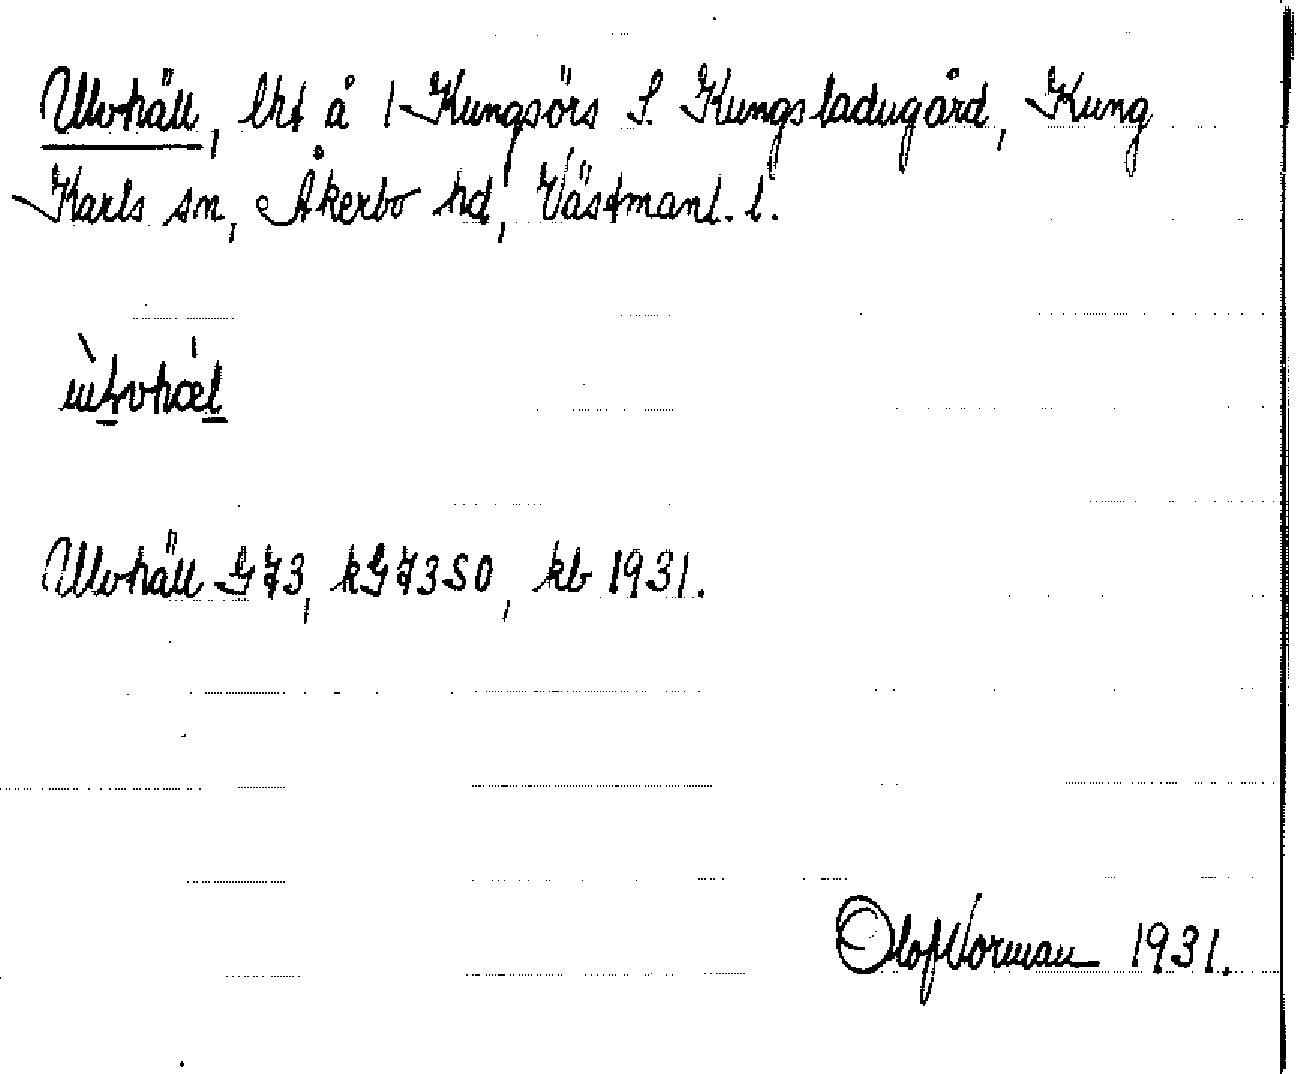 Ulvhäll, lht å 1 Kungsörs S. Kungsladugård, Kung
Karls sn, Åkerbo hd, Västmanl. l.
Ulvhäll GJ3, kGJ350, kb 1931.
Olof Vorman 1931.